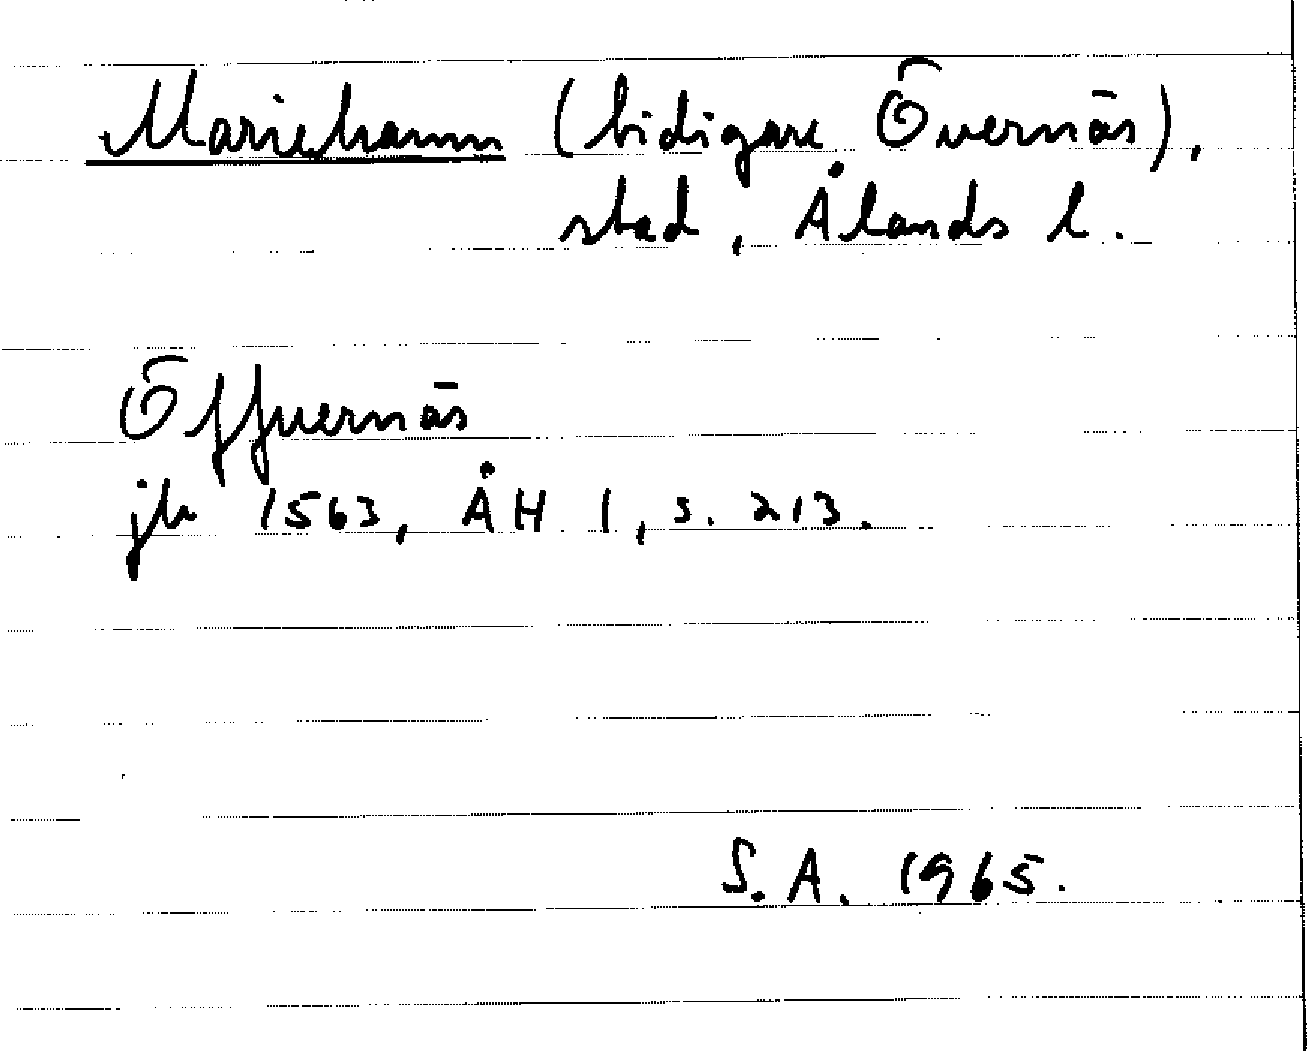 Mariehamn (tidigare Övernäs),
stad, Ålands l.
Öffuernäs
jb 1563, ÅH 1, s. 213.
S.A. 1965.